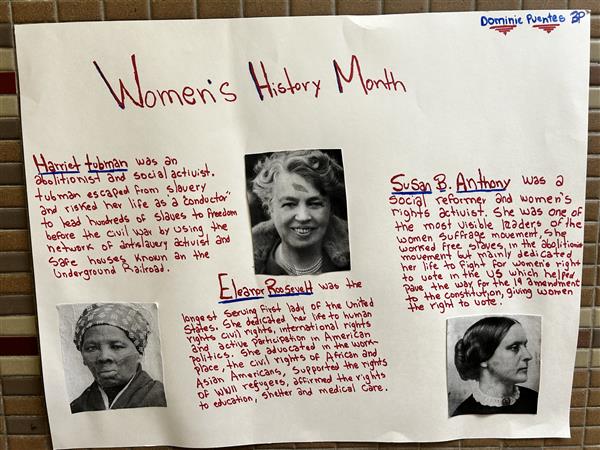 Dominic Puentes 3P
Women's History Month
Harriet tubman was an
abolitionist and social activist.
tubman escaped from slavery
and risked her life as a "conductor"
to lead hundreds of slaves to freedom
before the civil war by using the
network of antislavery activist and
safe houses known an the
Underground Railroad.
Eleanor Roosevelt was the
longest serving first lady of the United
States. She dedicated her life to human
rights civil rights, international rights
and active participation in American
politics. She advocated in the work-
place, the civil rights of African and
Asian Americans, supported the rights
of WWII refugees, affirmed the rights
to education, shelter and medical care.
Susan B. Anthony was a
social reformer and women's
rights activist. She was one of
the most visible leaders of the
women suffrage movement. She
worked free slaves, in the abolitionis
movement but mainly dedicated
her life to fight for women's right
to vote in the US which helped
pave the way for the 19 amendment
to the constitution, giving women
the right to vote.